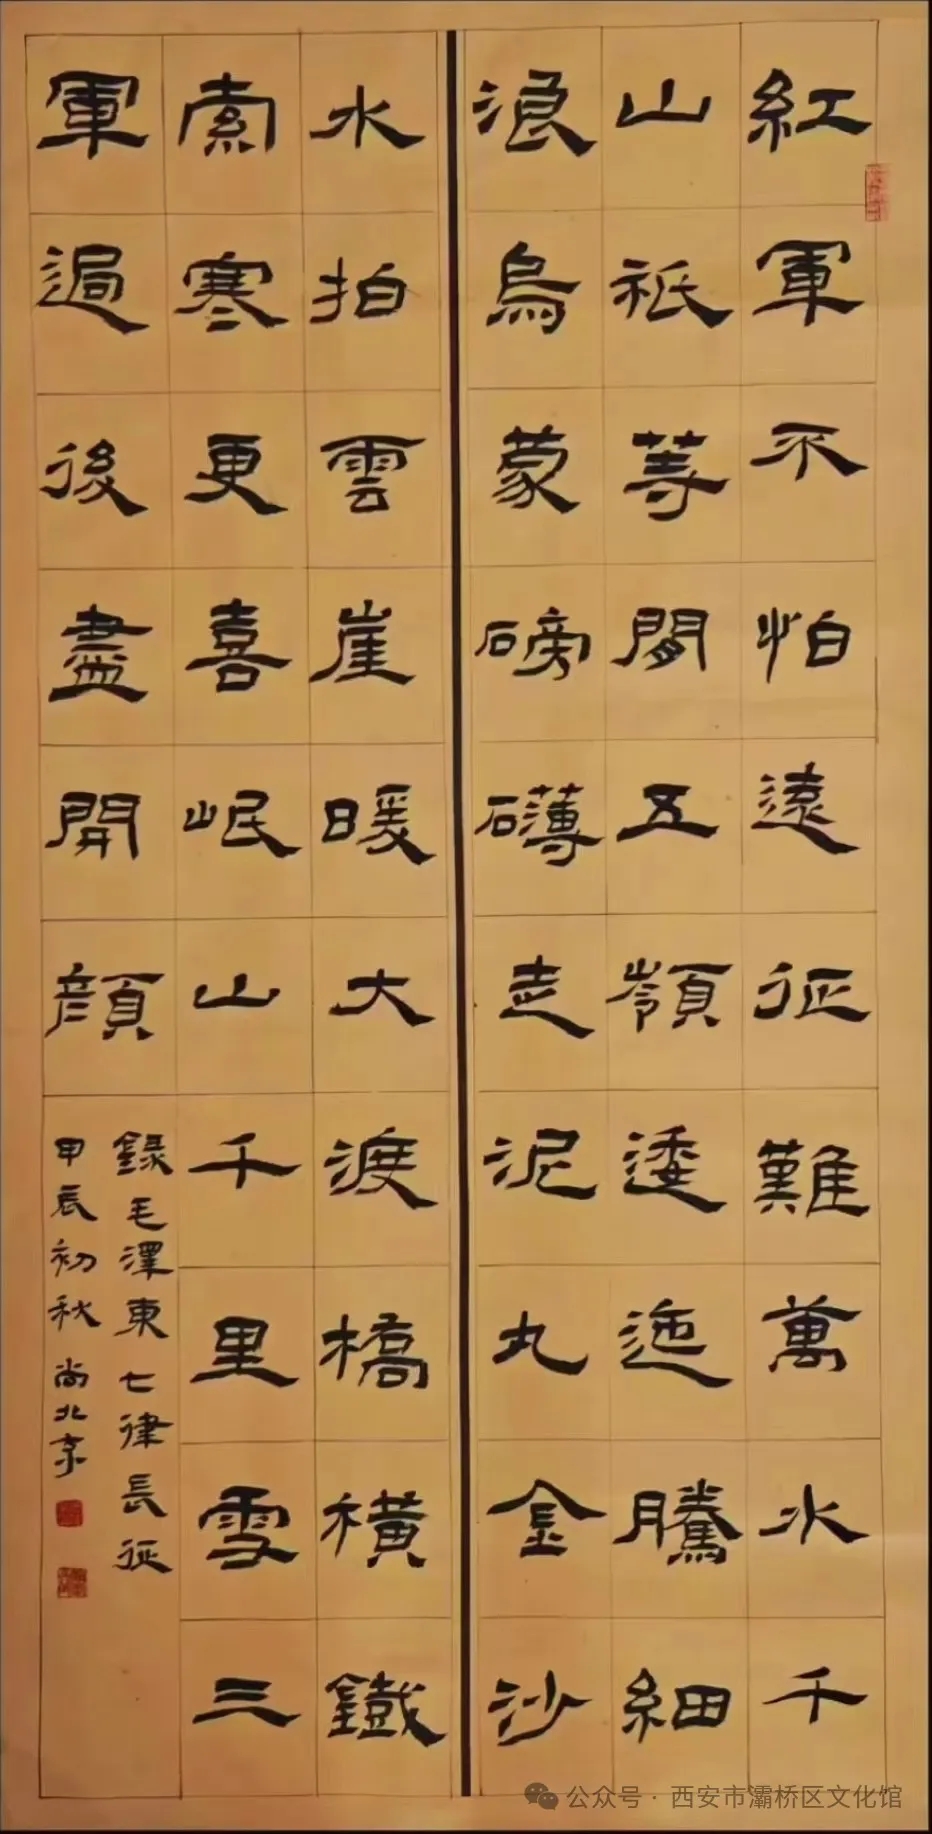 紅軍不怕遠征難萬水千
山祇等閒五嶺逶迤騰細
浪烏蒙磅礴走泥丸金沙
水拍雲崖暖大渡橋橫鐵
索寒更喜岷山千里雪三
軍過後盡開顏
錄毛澤東七律長征
甲辰初秋尚北京
公众号·西安市灞桥区文化馆